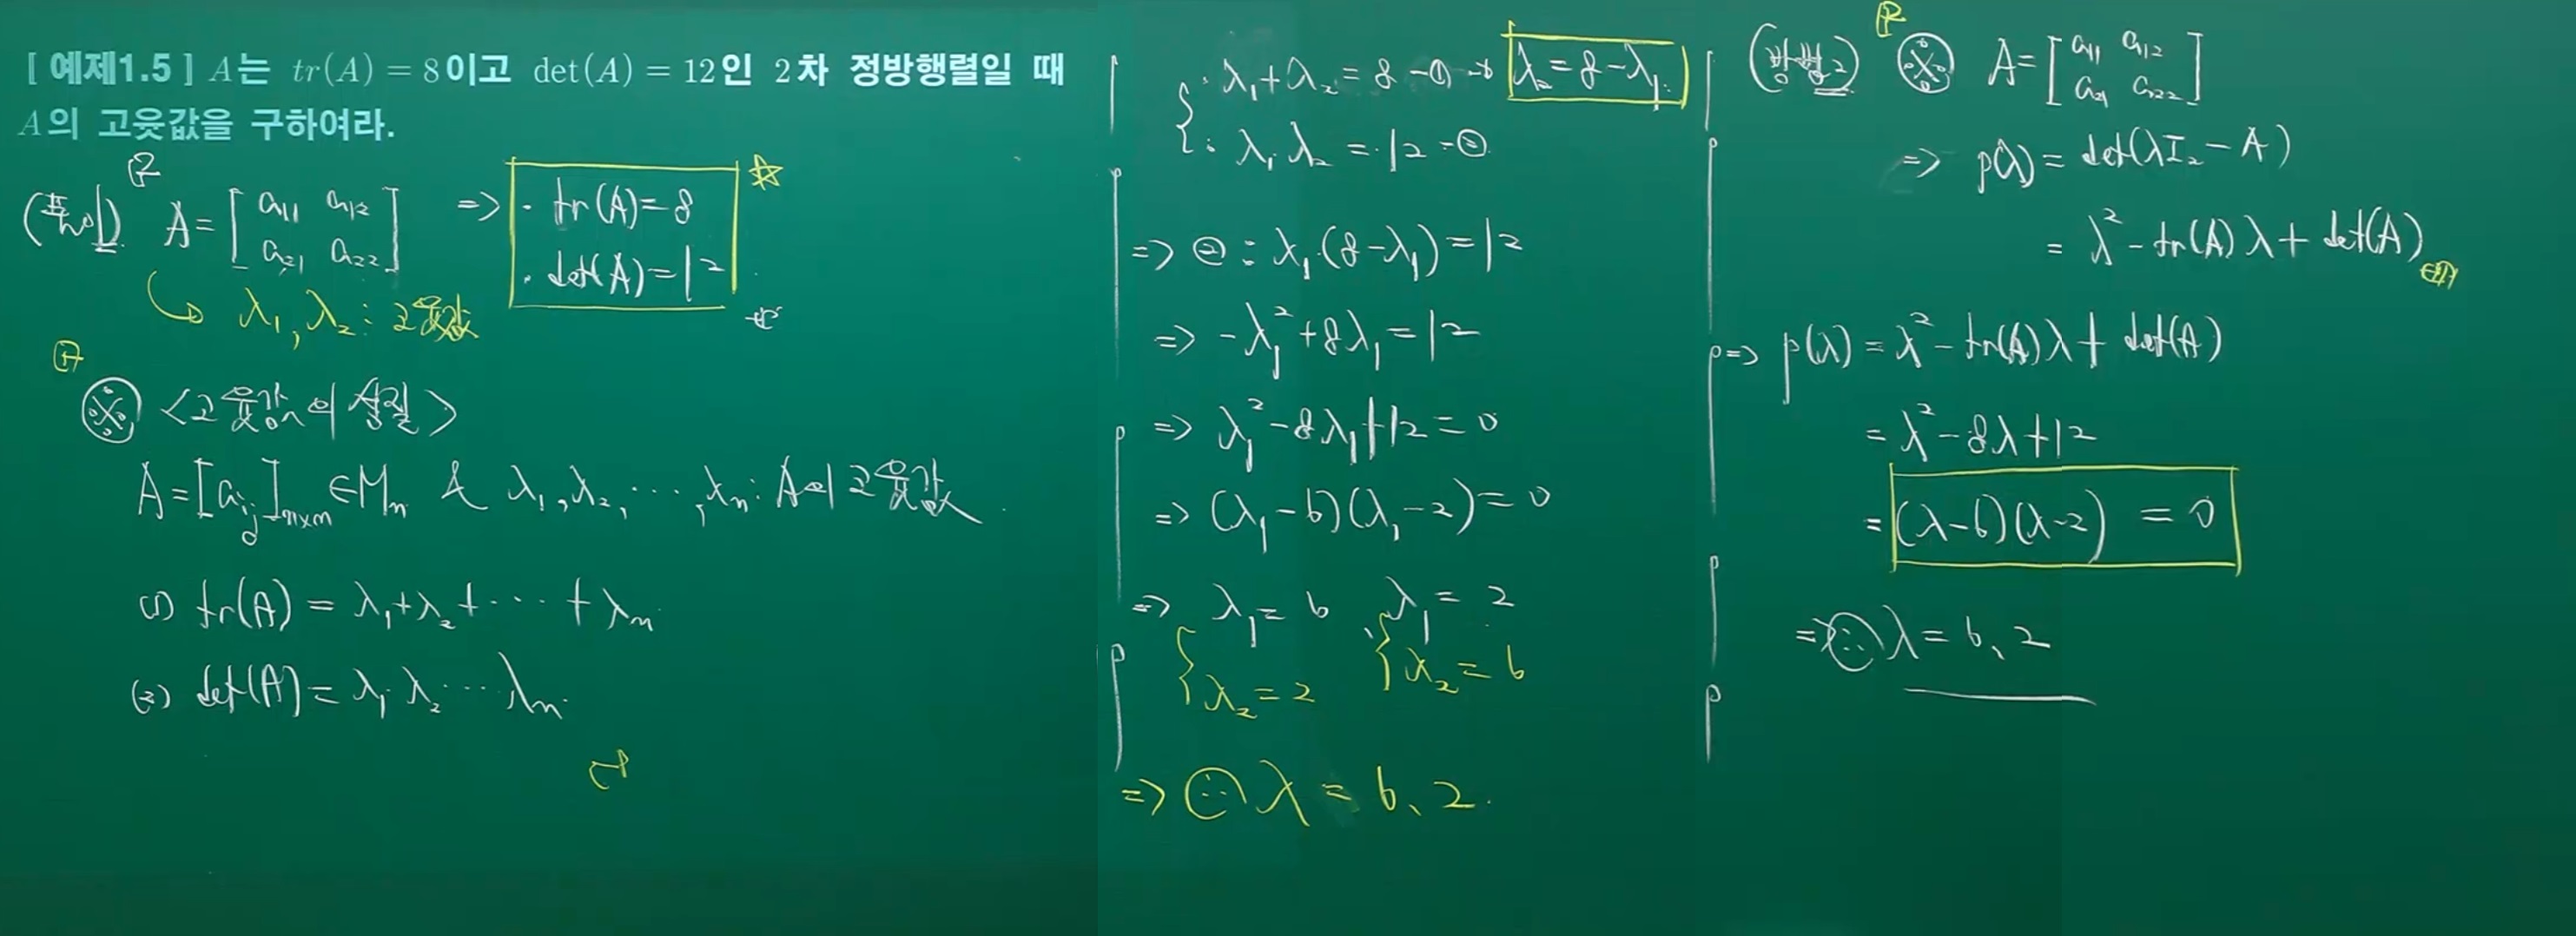 [ 예제1.5 ] A는 tr(A) = 8이고 det(A) = 12인 2차 정방행렬일 때
A의 고윳값을 구하여라.
(풀이) A = [a₁₁ a₁₂
a₂₁ a₂₂] => · tr(A) = 8
· det(A) = 12
λ₁, λ₂ : 고윳값
<고윳값의 성질>
A = [aᵢⱼ]ₙₓₙ ∈ Mₙ & λ₁, λ₂, ..., λₙ : A의 고윳값
(1) tr(A) = λ₁ + λ₂ + ... + λₙ
(2) det(A) = λ₁ λ₂ ... λₙ
λ₁ + λ₂ = 8 - ① → λ₂ = 8 - λ₁
λ₁ λ₂ = 12 - ②
=> ② : λ₁ · (8 - λ₁) = 12
=> -λ₁² + 8λ₁ = 12
=> λ₁² - 8λ₁ + 12 = 0
=> (λ₁ - 6)(λ₁ - 2) = 0
=> λ₁ = 6, λ₁ = 2
λ₂ = 2 λ₂ = 6
=> ∴ λ = 6, 2
(방법2) ※ A = [a₁₁ a₁₂
a₂₁ a₂₂]
=> p(λ) = det(λI₂ - A)
= λ² - tr(A) λ + det(A)
=> p(λ) = λ² - tr(A) λ + det(A)
= λ² - 8λ + 12
= (λ - 6)(λ - 2) = 0
=> ∴ λ = 6, 2